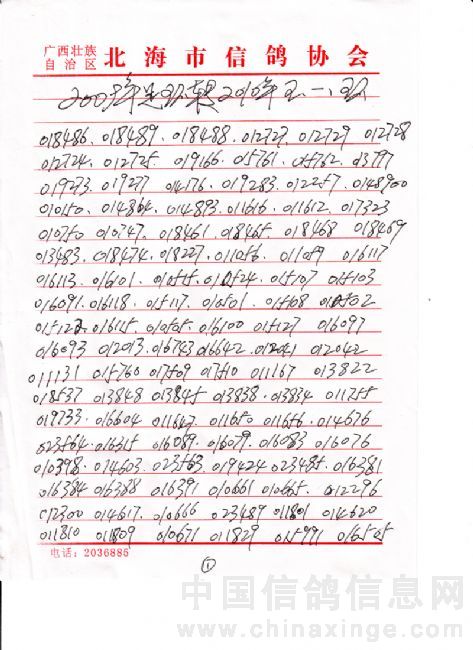 广西壮族
自治区 北海市信鸽协会
2009年 2010年五一
018486. 018489. 018088. 012727. 012729 012728
012724. 012725 019166 015761. 015762. 013797
019273. 019277 014176. 019283. 012257.
01050. 014864. 014893. 011616. 011612. 017323
010750 010747. 018461. 018465. 018468 018469
013483. 018474. 018227. 011056. 011059 016117
016113. 016101. 010555. 010524. 015107 015103
016091. 016118. 015117. 010501. 015108 010502
015122. 016115. 010505. 016100 015127 016097
016093 012013. 016743 016642. 012041 012042
011131 015760 017509 017510 011167 013822
018537 013848 013845 013838. 013834 011755
019733. 016604 011647 011650 011656. 014676
023564. 016315 016089. 016079. 016083 016076
010398. 014603. 023563. 019424 023485. 016381
016384 016388 016391 010661 010665. 012296
012300 014617. 010666 023489 011801 014620
011810 011809 010671 011829 015991 016505
电话：2036885
①
中国信鸽信息网
www.chinaxinge.com